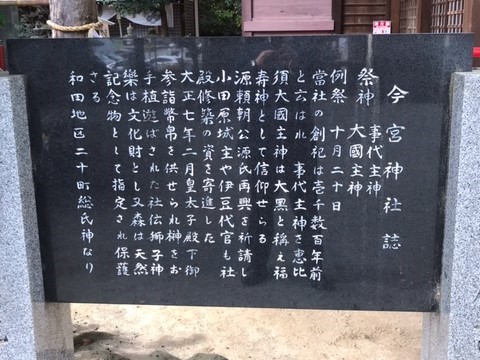 今宮神社誌
祭神 事代主神
大國主神
例祭 十月二十日
當社の創祀は壱千数百年前
と云はれ 事代主神を恵比
須大國主神は大黒と稱え福
寿神として信仰せらる
源頼朝公源氏再興を祈請し
小田原城主や伊豆代官も社
殿修築の資を寄進した
大正七年二月皇太子殿下御
参詣幣帛を供せられ榊をお
手植遊ばされた社伝獅子神
樂は文化財とし又森は天然
記念物として指定され保護
さる
和田地区二十町総氏神なり